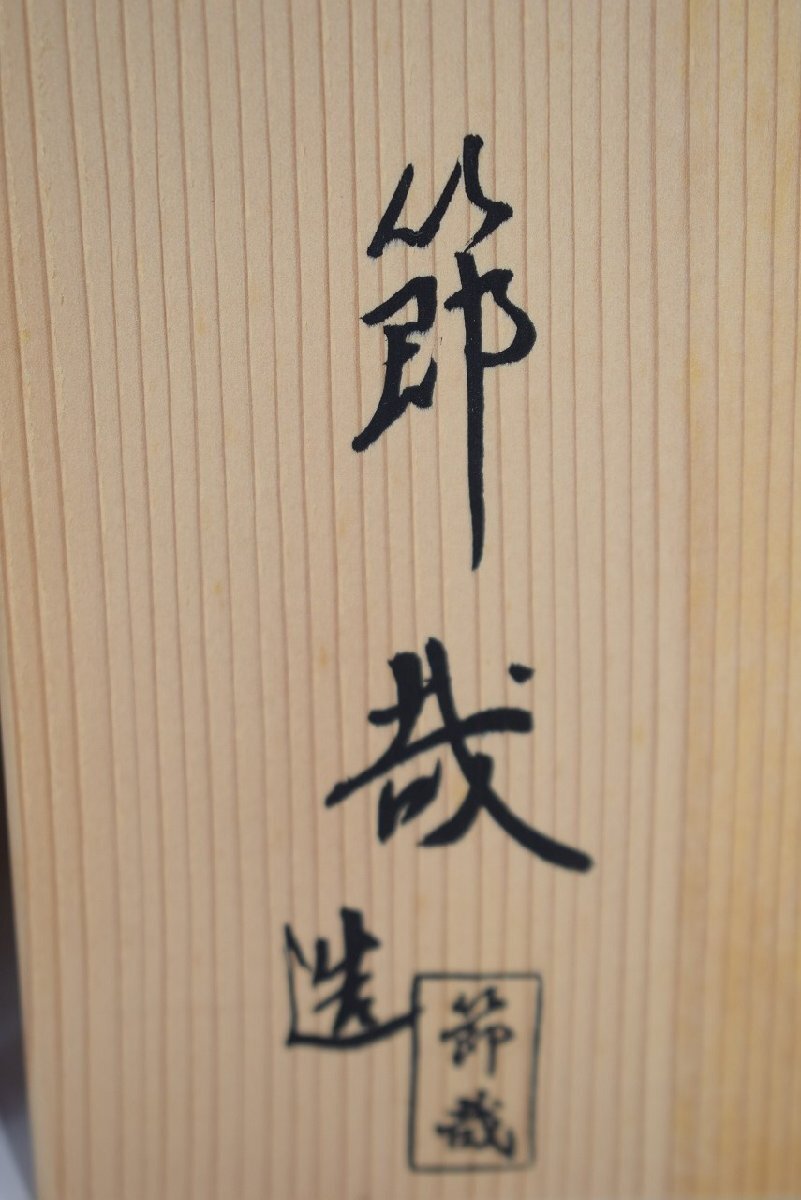 節哉
造
節哉